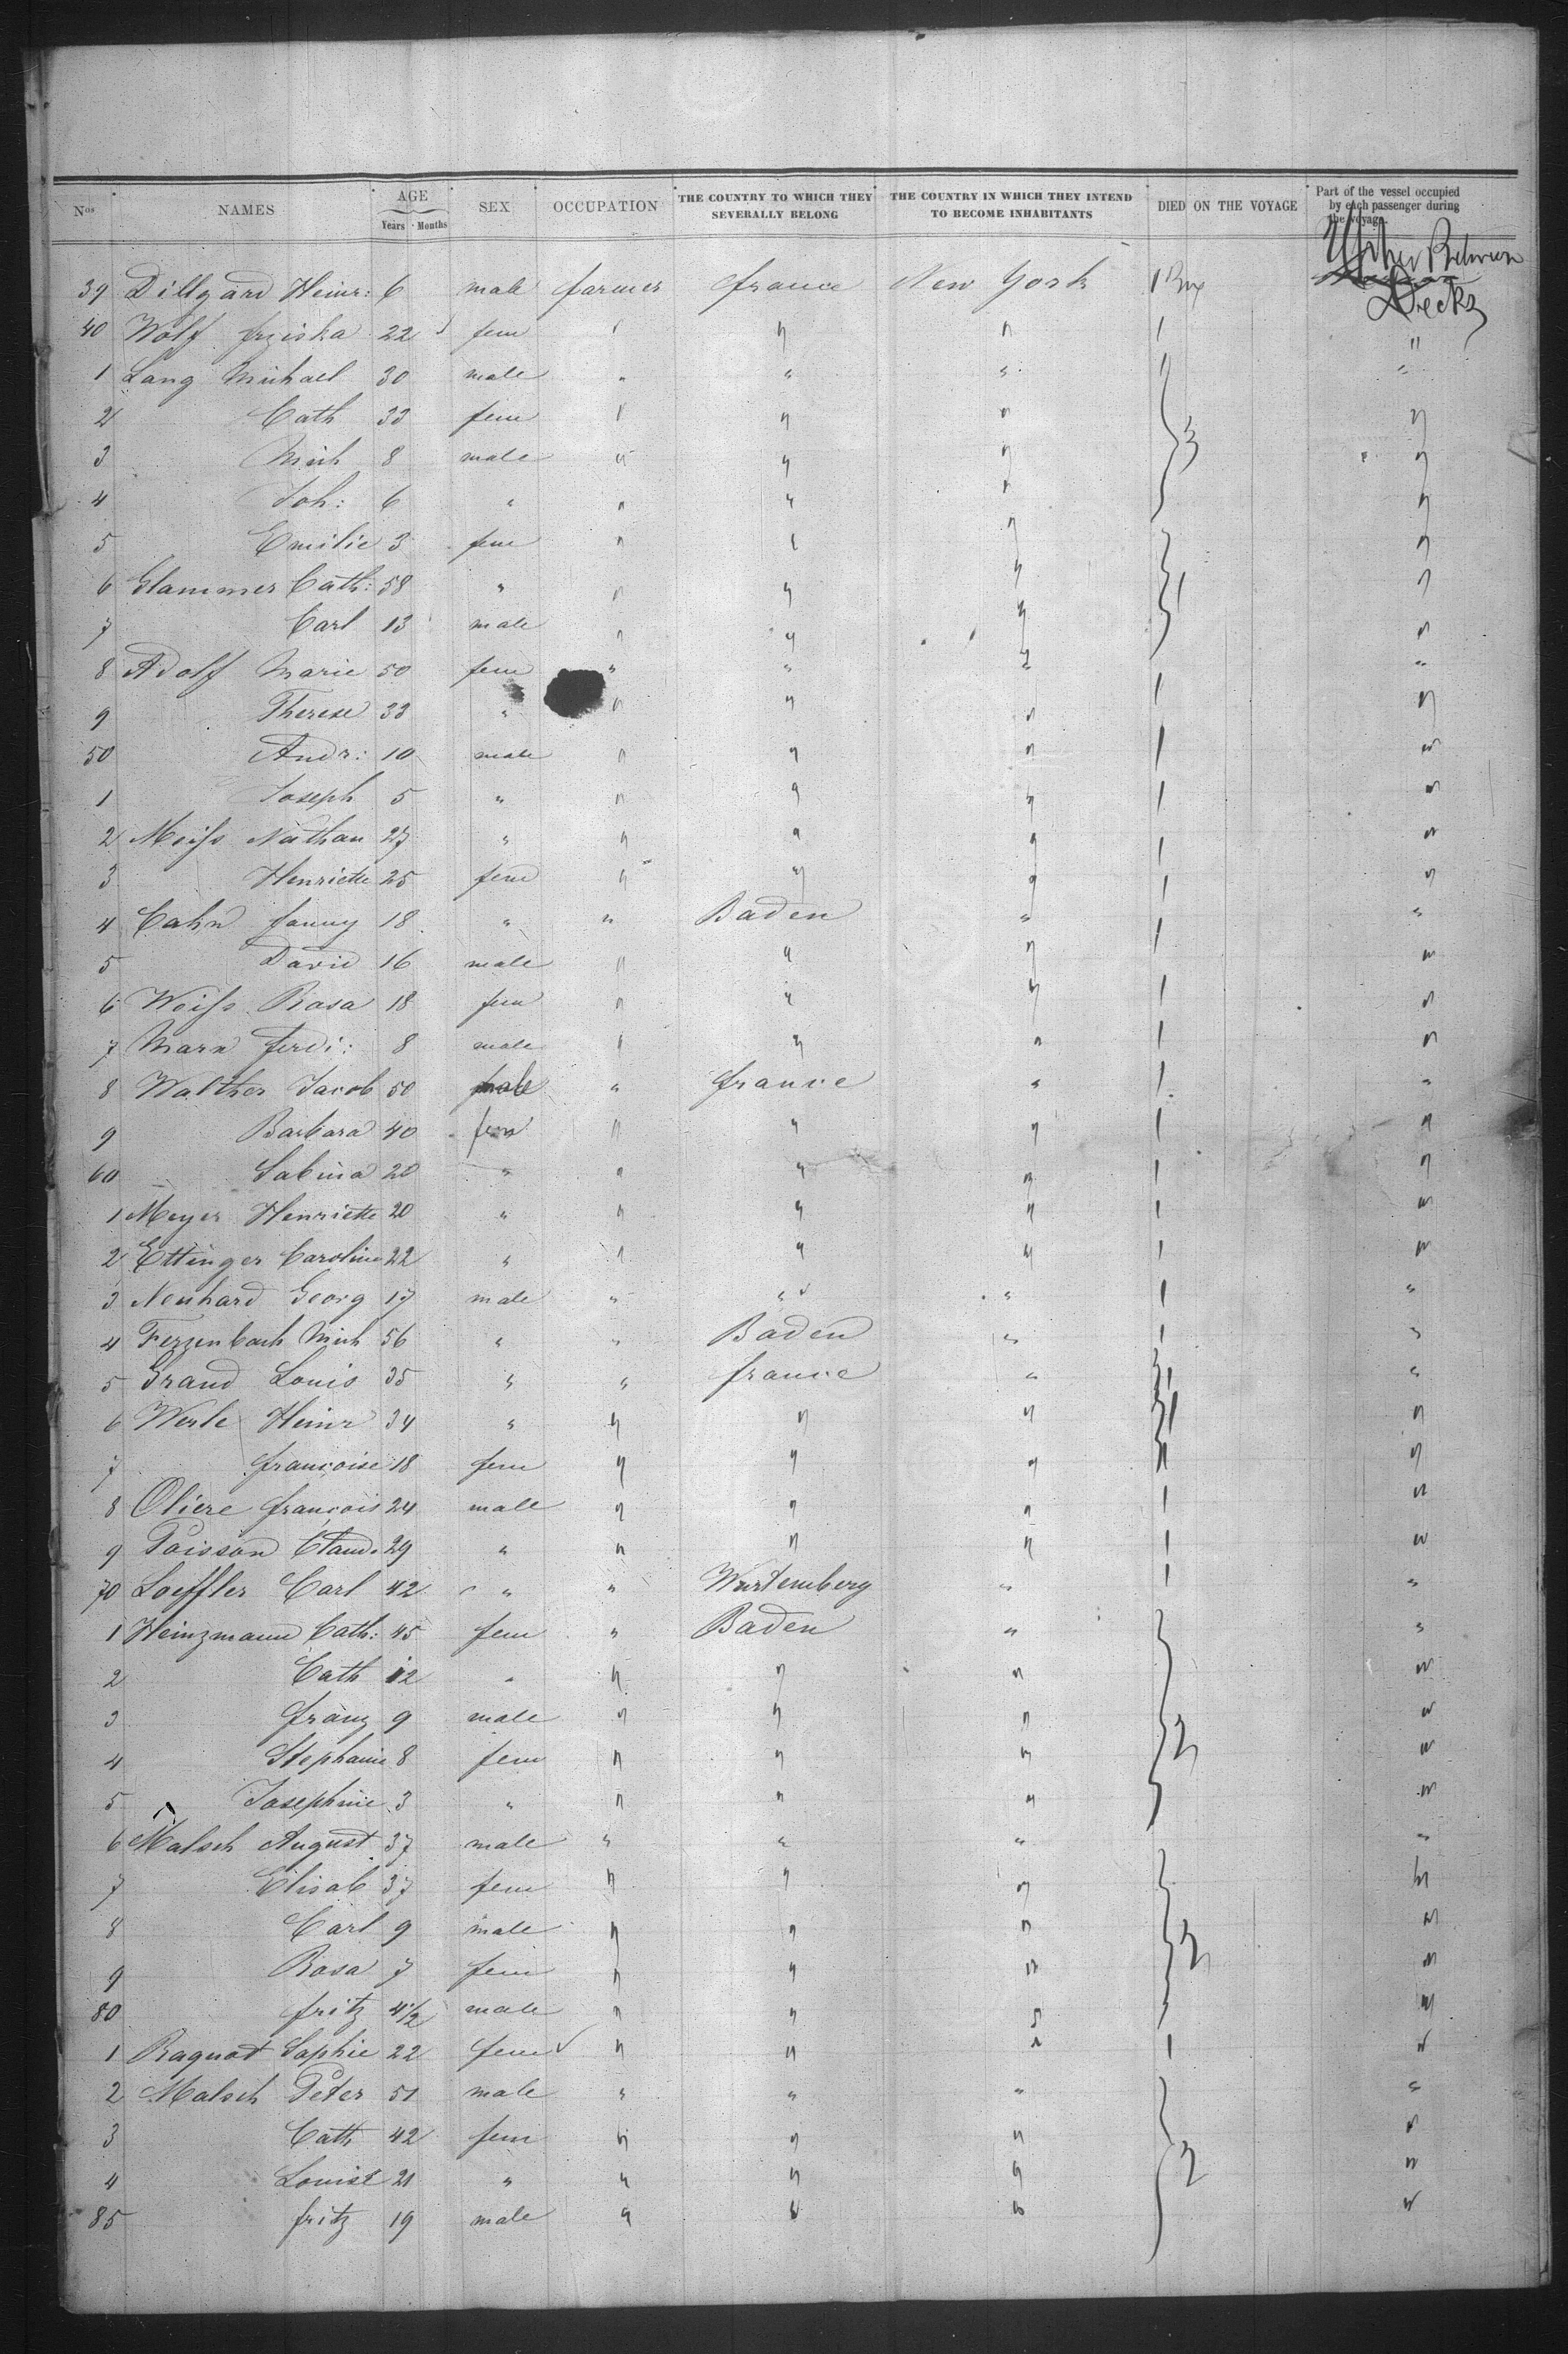 Nos NAMES AGE Years Months SEX OCCUPATION THE COUNTRY TO WHICH THEY SEVERALLY BELONG THE COUNTRY IN WHICH THEY INTEND TO BECOME INHABITANTS DIED ON THE VOYAGE Part of the vessel occupied by each passenger during the voyage.
39 Dillgard Heinr: 6 male farmer france New York 1 Box Upher Between Decks
40 Wolf frziska 22 fem " " " 1 "
1 Lang Michael 30 male " " " "
2 Cath 33 fem " " " "
3 Mich 8 male " " " 3 "
4 Joh: 6 " " " " "
5 Emilie 3 fem " " " "
6 Glammer Cath: 58 " " " " 1 "
7 Carl 13 male " " " "
8 Adolf Marie 50 fem " " " 1 "
9 Therese 33 " " " " 1 "
50 Andr: 10 male " " " 1 "
1 Joseph 5 " " " " 1 "
2 Meiss Nathan 27 " " " " 1 "
3 Henriette 25 fem " " " 1 "
4 Cahn fanny 18 " " Baden " 1 "
5 David 16 male " " " "
6 Weiss Rosa 18 fem " " " 1 "
7 Marx ferdi: 8 male " " " 1 "
8 Walther Jacob 50 male " france " 1 "
9 Barbara 40 fem " " " 1 "
60 Sabina 20 " " " " 1 "
1 Meyer Henriette 20 " " " " 1 "
2 Ettinger Caroline 22 " " " " 1 "
3 Neuhard Georg 17 male " " " 1 "
4 Ferzenbach Mich 56 " " Baden " 1 "
5 Grand Louis 35 " " france " 1 "
6 Werle Heinr 34 " " " " 1 "
7 francoise 18 fem " " " "
8 Oliere françois 24 male " " " 1 "
9 Poisson Claud. 29 " " " " 1 "
70 Loeffler Carl 42 " " Wurtemberg " 1 "
1 Heinzmann Cath: 45 fem " Baden " "
2 Cath 12 " " " " "
3 franz 9 male " " " "
4 Stephanie 8 fem " " " 2 "
5 Josephine 3 " " " " "
6 Malsch August 37 male " " " "
7 Elisab 37 fem " " " "
8 Carl 9 male " " " "
9 Rosa 7 fem " " " 2 "
80 fritz 4 1/2 male " " " "
1 Raquot Sophie 22 fem " " " 1 "
2 Malsch Peter 51 male " " " "
3 Cath 42 fem " " " "
4 Louise 21 " " " " 2 "
85 fritz 19 male " " " "